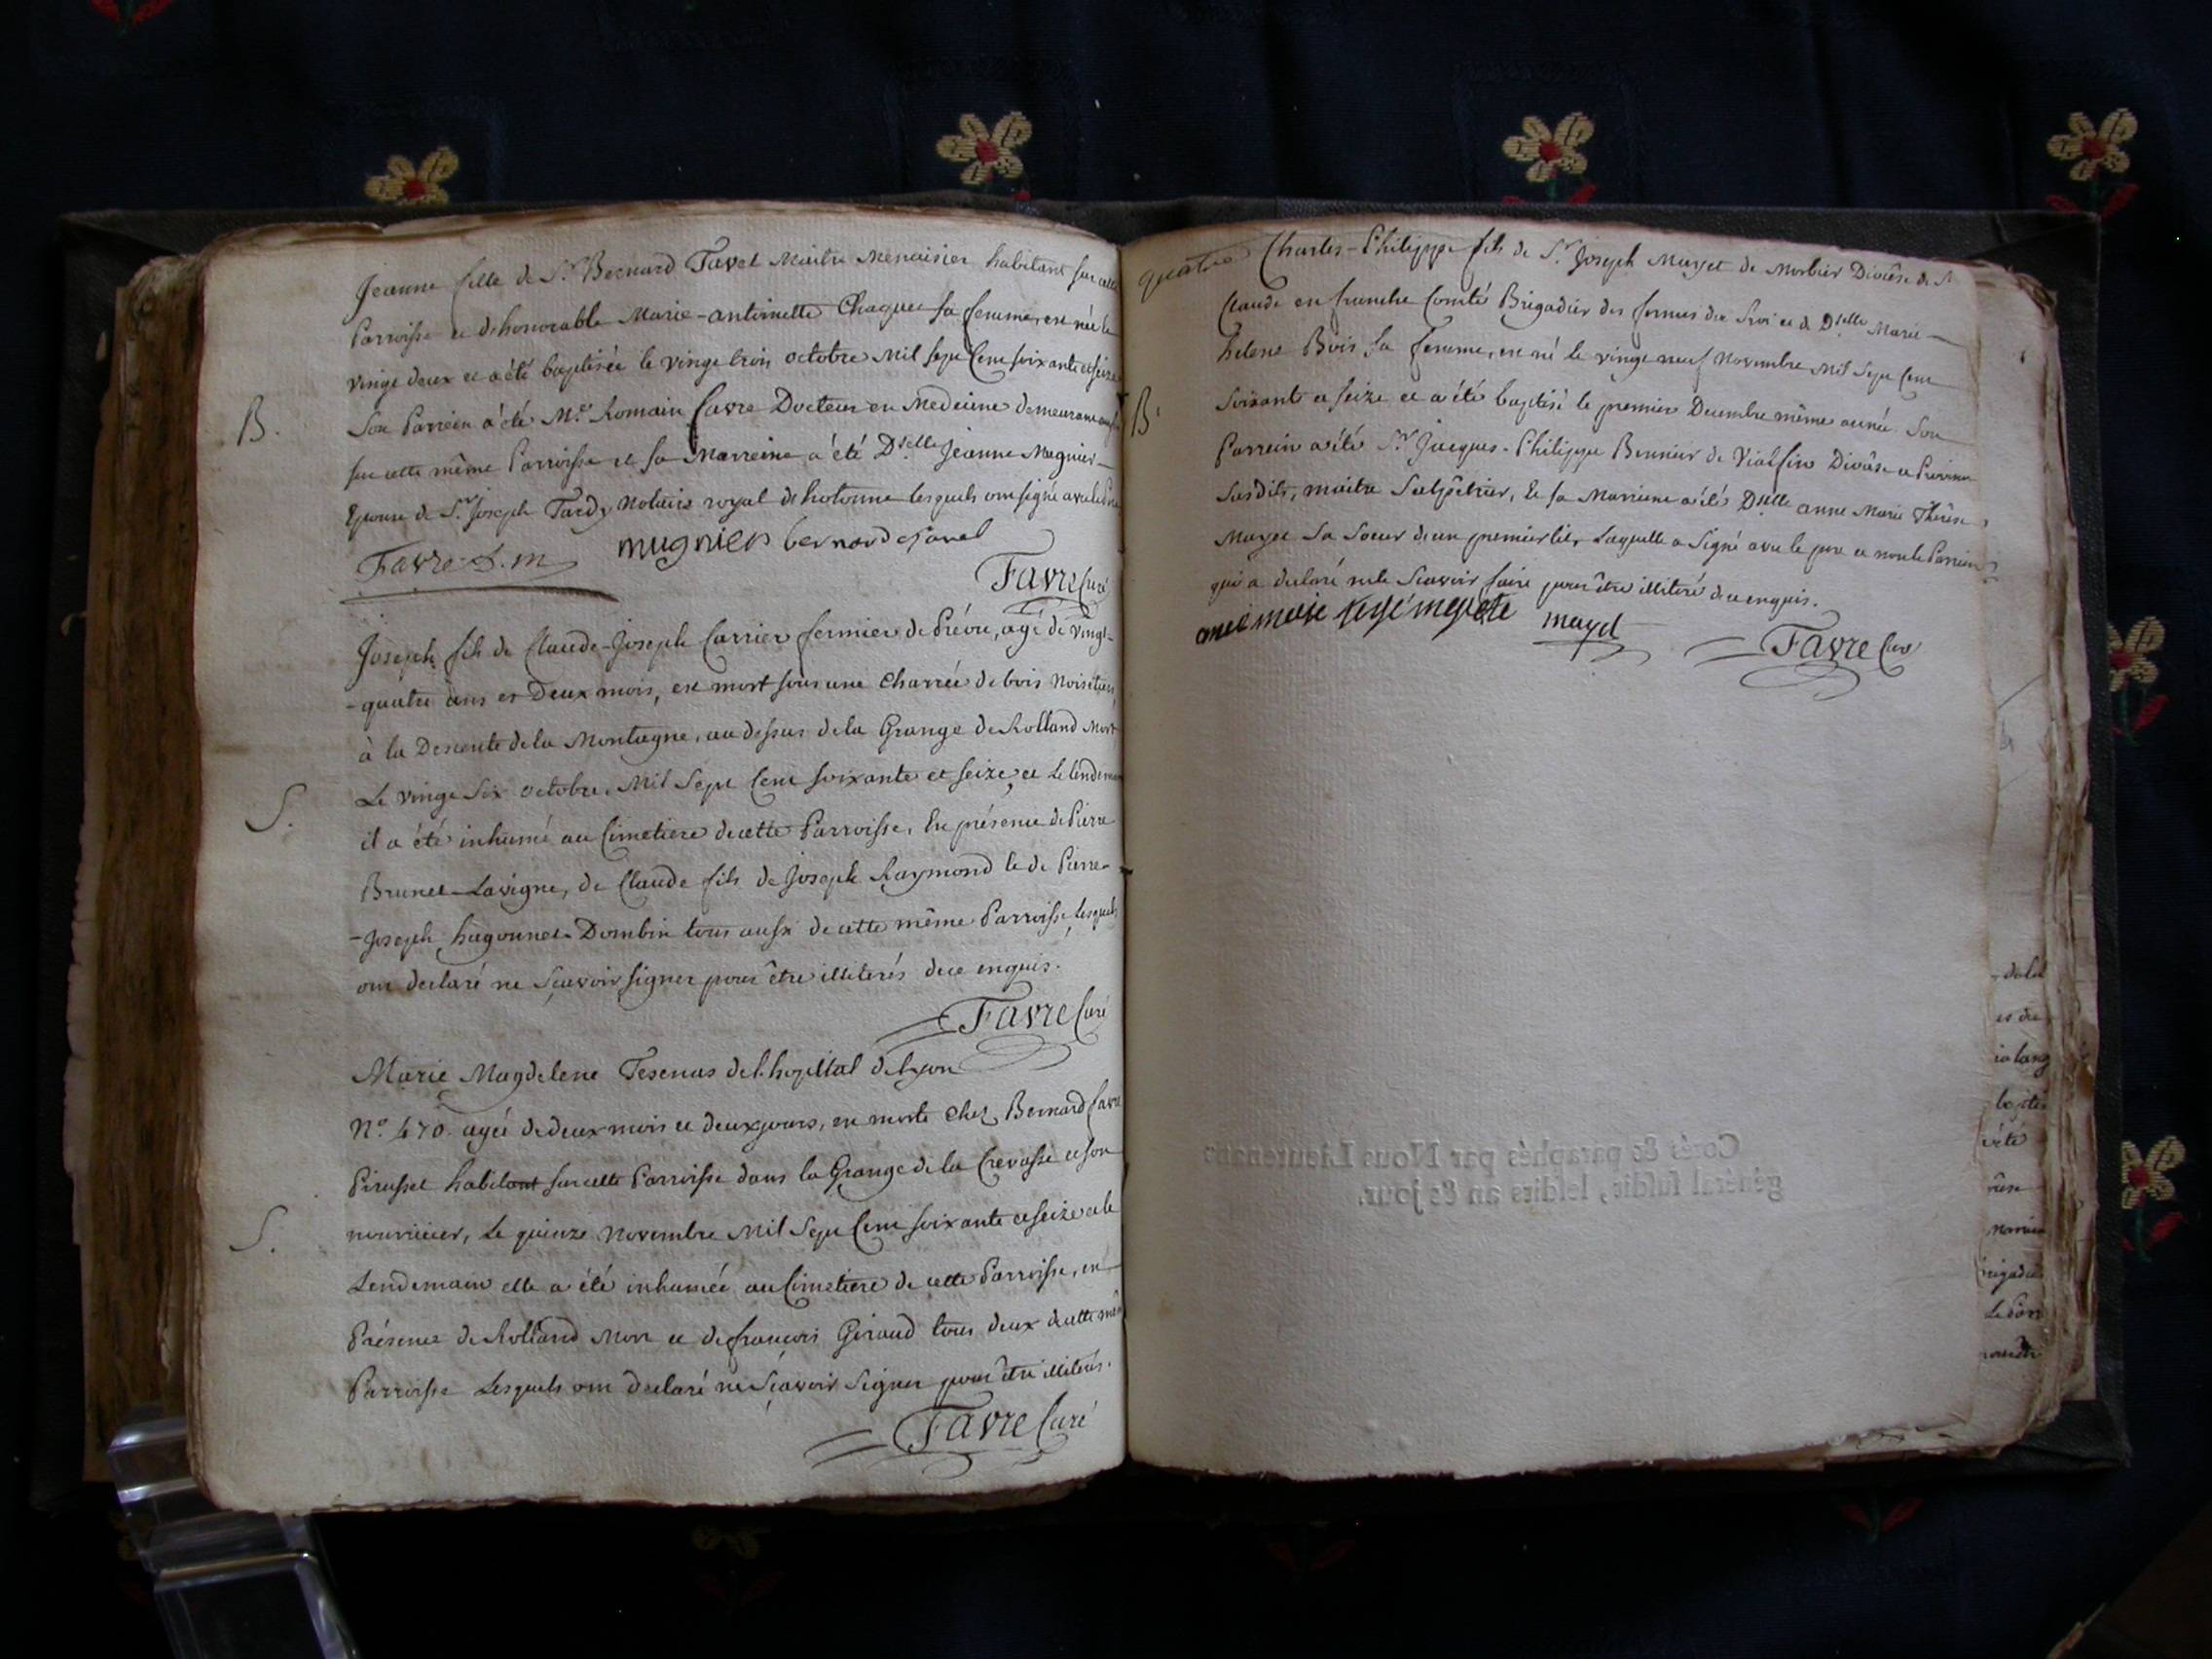 Jeanne fille de Sr. Bernard Tavel Maitre Menuisier habitant sur cette
Parroisse et dhonorable Marie-antoinette Chaquet sa femme, est née le
vingt deux et a été baptisée le vingt trois octobre Mil sept Cent soixante et seize
B.
Son Parrein à été Mr. Romain Favre Docteur en Medecine demeurant
sur cette même Parroisse et sa Marreine a été Dselle Jeanne Mugnier
Epouse de Sr. Joseph Tardy Notaire royal de hotonne lesquels ont signé avec le
Favre D.m mugnier bernard tavel
Favre Curé
Joseph fils de Claude-Joseph Carrier fermier de Prévon, agé de vingt-
-quatre ans et Deux mois, est mort sous une Charrée de bois Noisetier
à la Descente de la Montagne, au dessus de la Grange de Rolland Mort
S.
Le vingt Six octobre Mil Sept Cent soixante et seize, et le lendemain
il a été inhumé au Cimetiere de cette Parroisse, En présence de Pierre
Brunet-Lavigne, de Claude fils de Joseph Raymond et de Pierre-
-Joseph hugonnet-Dombin tous aussi de cette même Parroisse, lesquels
ont declaré ne Sçavoir signer pour être illiterés de ce enquis.
Favre Curé
Marie Magdelene Tesenas de l'hopittal de Lyon
No. 470. agée de deux mois et deux jours, est morte Chez Bernard Favre
Pirusset habitant sur cette Parroisse dans la Grange de la Crevasse et son
S.
nourricier, Le quinze Novembre Mil Sept Cent soixante et seize et le
Lendemain elle a été inhumée au Cimetiere de cette Parroisse, en
Présence de Rolland Mort et de françois Giraud tous deux de cette même
Parroisse Lesquels ont declaré ne Sçavoir Signer pour être illiterés.
Favre Curé
quatre
Charles-Philippe fils de Sr. Joseph Mayet de Morbier Diocèse de St
Claude en franche Comté Brigadier des fermes du Roi et de Dselle Marie-
helene Bois sa femme, est né le vingt neuf Novembre Mil Sept Cent
B.
Soixante et seize et a été baptisé le premier Decembre même année Son
Parrein a été Sr Jacques-Philippe Bonnier de Vialfin Diocèse et Province
Susdits, maitre Salpêtrier, Et sa Marreine a été Dselle anne Marie Thérèse
Mayet Sa Soeur d'un premier lit, Laquelle a Signé avec le pere et non le Parrein
qui a declaré ne le Scavoir faire pour être illiteré de ce enquis.
mayet
Favre Curé
Cotés & paraphés par Nous Lieutenant
général susdit, lesdits an & jour.